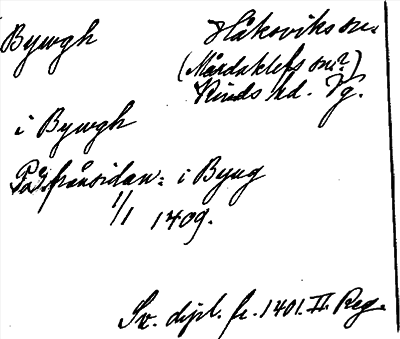 Bywgh Håksviks sn.
(Mårdaklefs sn?)
Kinds hd. Vg.
i Bywgh
På frånsidan: i Byug
1/1 1409.
Sv. dipl. fr. 1401. II. Reg.